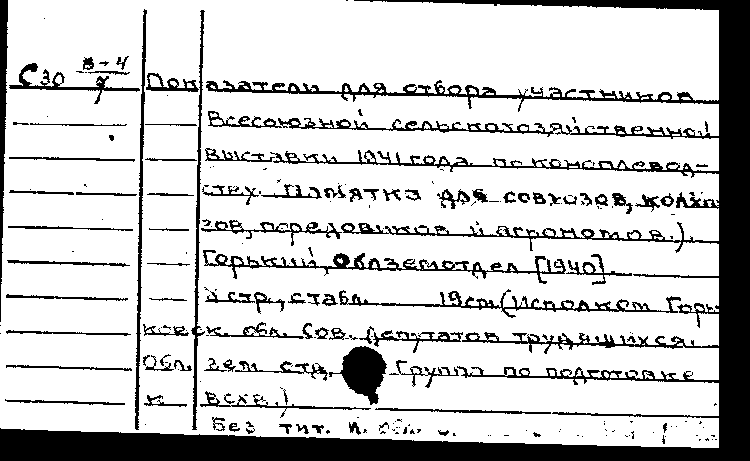 С30 В-4/7 Показатели для отбора участников
Всесоюзной сельскохозяйственной
выставки 1941 года по коноплевод-
ству. Памятка для совхозов, колхо
зов, передовиков и агрономов.).
Горький, Облземотдел [1940].
стр., с табл. 19 см. (Исполком Горь
ковск. обл. Сов. депутатов трудящихся.
Обл. зем. отд. Группа по подготовке
к ВСХВ.).
Без тит. л. Обл.